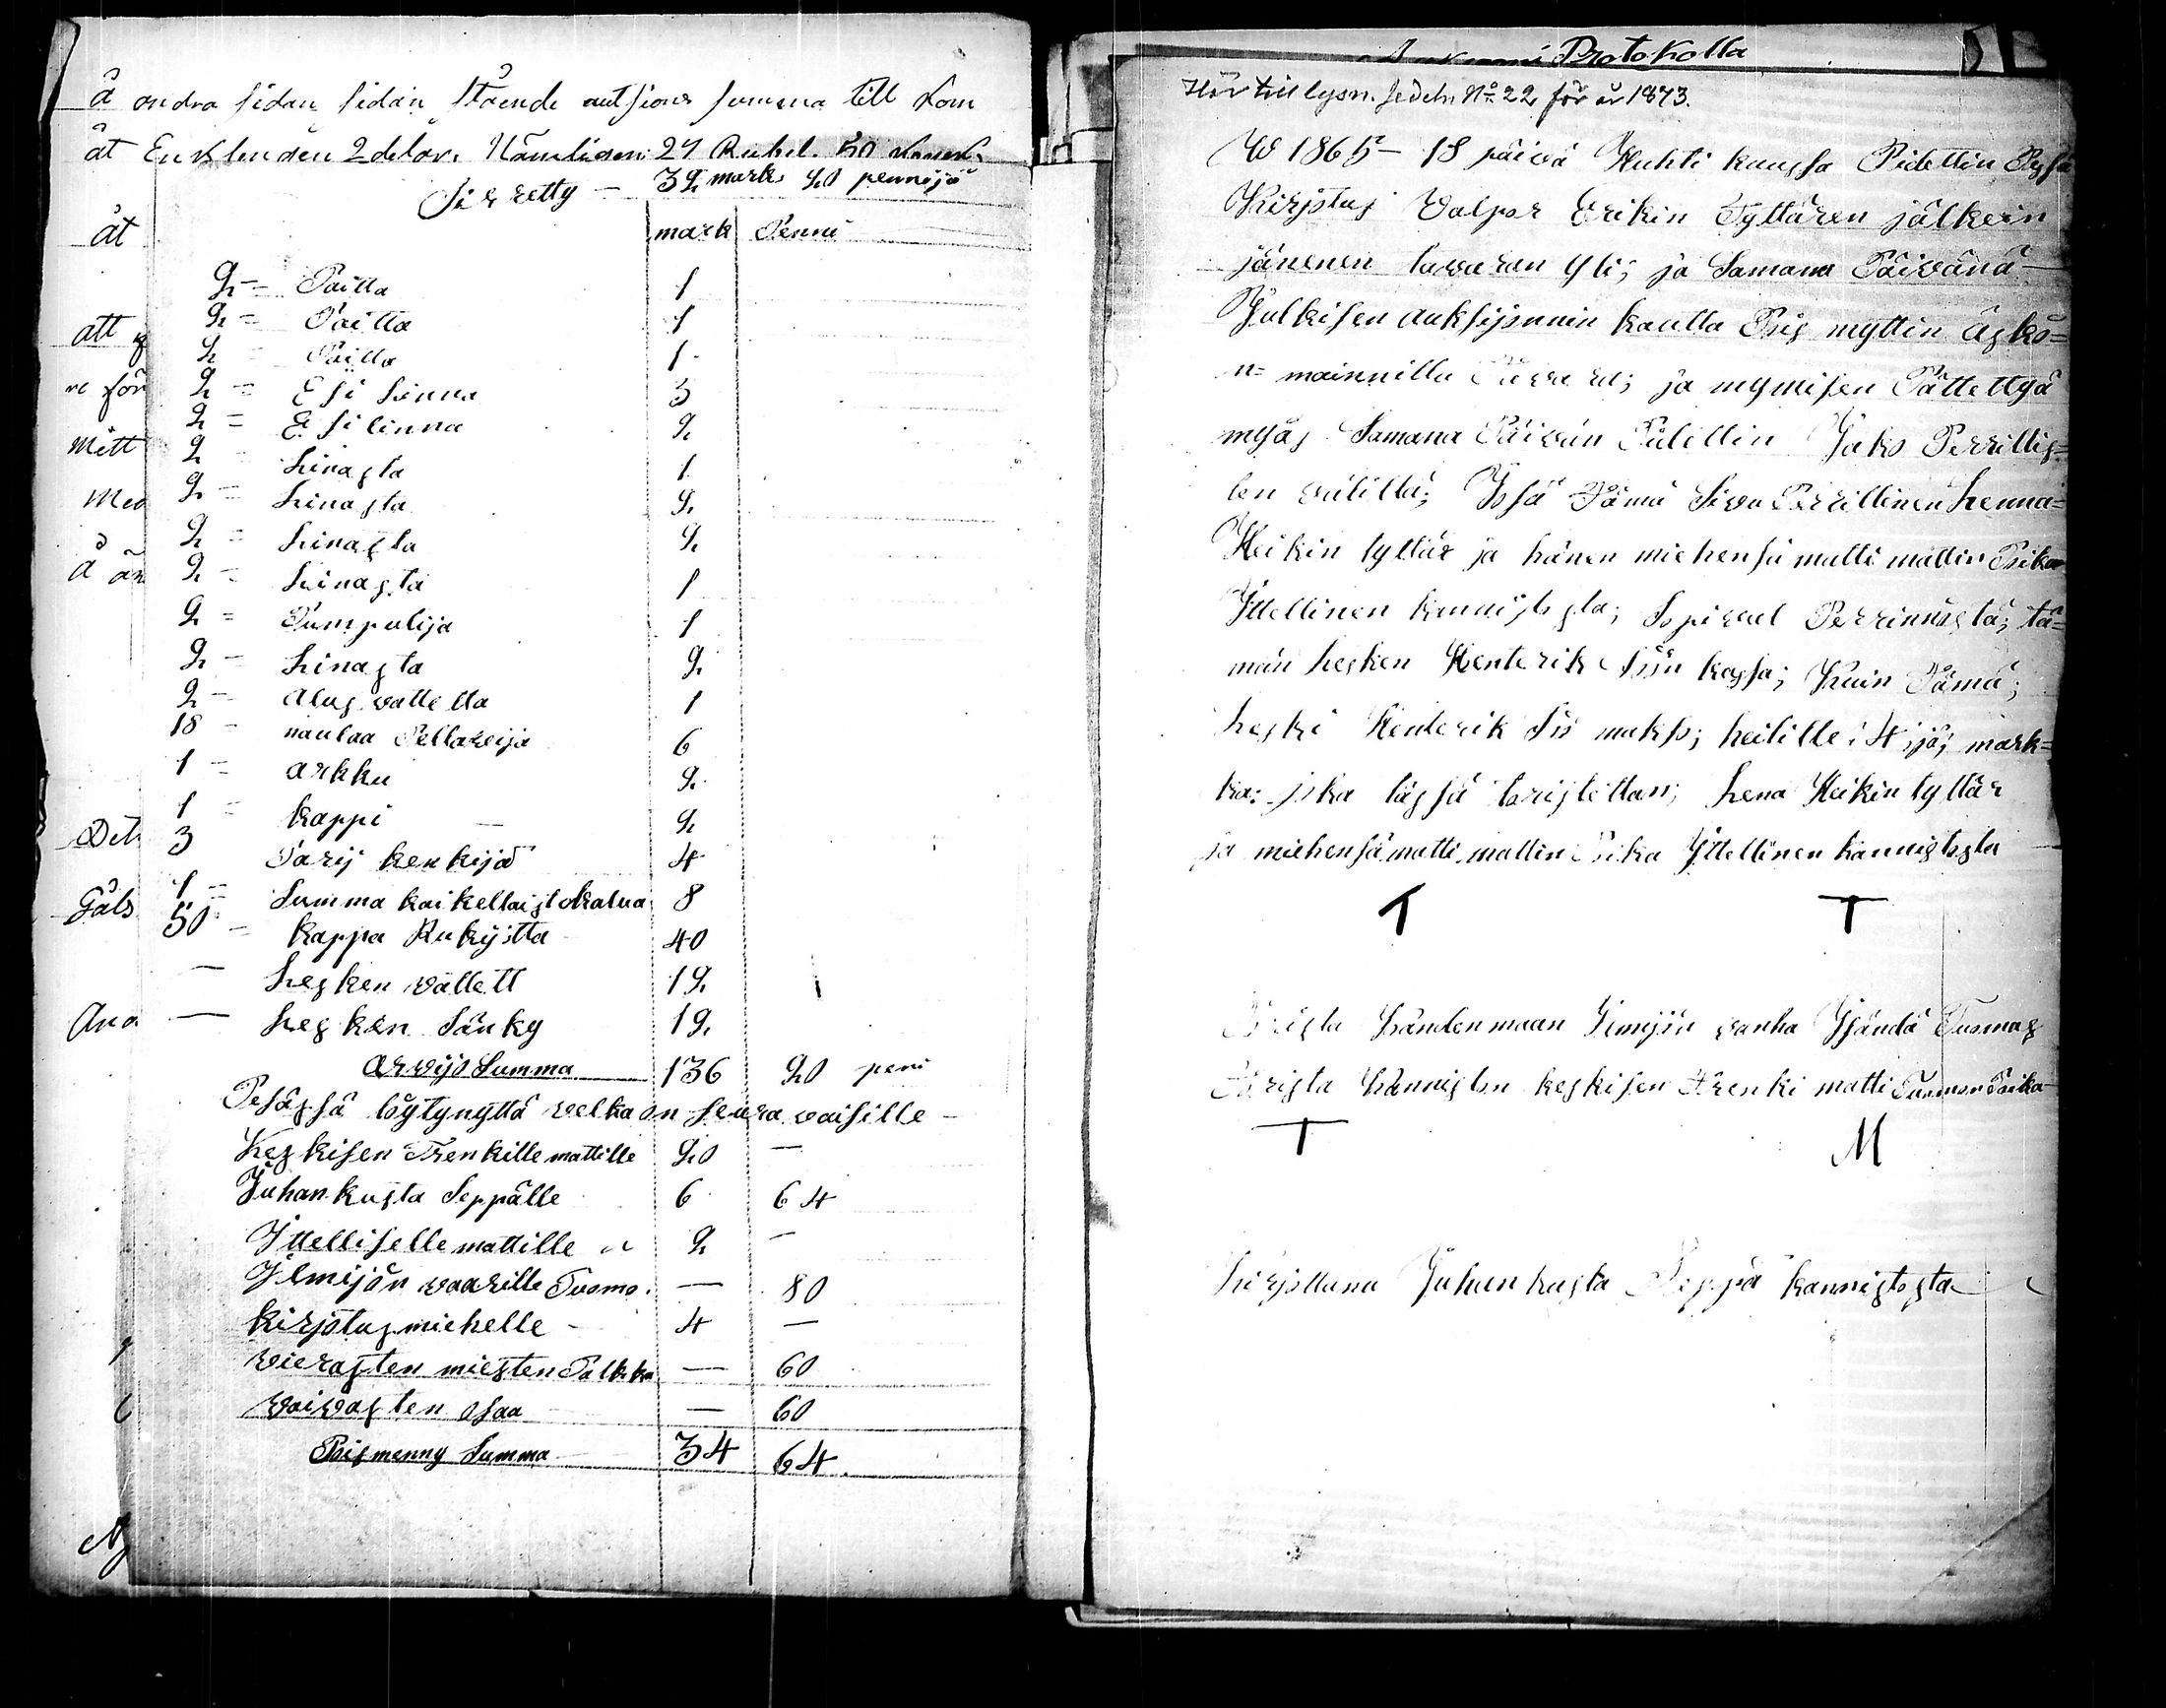 å andra sidan sidan stående autsions summa till kom
åt Enklenden 2 delar. Nämligen: 27 Rubel. 50
Siirretty — 32 mark 20 penniä
åt mark Penni
2 — Paitta 1
2 = Paitta 1
att
2 = Paitta 1
re för 2 = Esi Linna 3
2 = Esilinna 2
Mitt 2 Linasta 1
Med 2 = Linasta 2
2 = Linasta 2
å än 2 — Linasta 1
2 = Pumpulija 1
2 — Linasta 2
2 — alus vattetta 1
18 — naulaa Pellavija 6
1 = arkku 2
1 = kappi — 2
Det 3 Parij kenkijä 4
1 = Summa kaikellaist okalua 8
Gåls 50 — kappa Rukijtta 40
— Lesken vattett 12
And — Lesken Sänky 12
arvijo Summa 136 20 peni
Pesässä löytynyttä velka on seura vaisille —
Keskisen Trenkille mattille 20 —
Juhan kusta Seppälle 6 64
Ittelliselle mattille 2 —
Ilmijön vaarille Tuomo. — 80
kirjotus miehelle — 4 —
vierasten miesten Palkka — 60
vaivasten osaa — 60
Poismenny Summa 34 64
Protokolla
Hör till lysn. sedeln No 22 för år 1873.
W 1865 — 18 päivä Huhti kuussa Pidettin Pysä
Kirjotus Valpor Erikin Tyttären jälkein
jänenen tavaran yli; ja Samana Päivänä —
Julkisen auksijonnin kautta Pois myttin äsko=
n= mainnittu Tavarat; ja myymisen Pättettyä
myäs Samana Päivän Pidettin Jako Perrillis=
ten välillä; Jossä Tämä Sivu Perrillinen Lenna=
Heikin tyttär ja hänen miehensä matti mattin Poika
Ittellinen kannistosta; Sopivat Perrinnöstä; tä=
män Lesken Henterik Ison kassa; Kuin Tämä;
Leski Henterik Iso makso; heitille: 4 jä; mark=
ka: joka tässä toristettan; Lena Heikin tyttär
ja miehensä matti mattin Poika Ittellinen kannistosta
T T
Torista Landenmaan Ilmijön vanha Isändä Tuomas
Torista Kanniston keskisen Trenki matti Tuomon Poika
T M
Kirjottanu Juhan kusta Seppä kannistosta